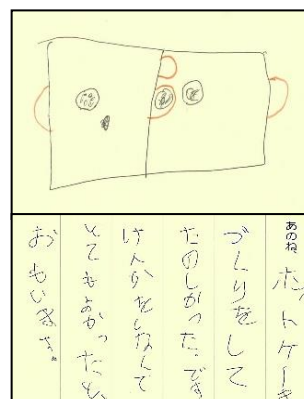 あのね、ホットケーキ
づくりをして
たのしかった。でき
けんかをしなんで
とてもよかったと
おもいます。